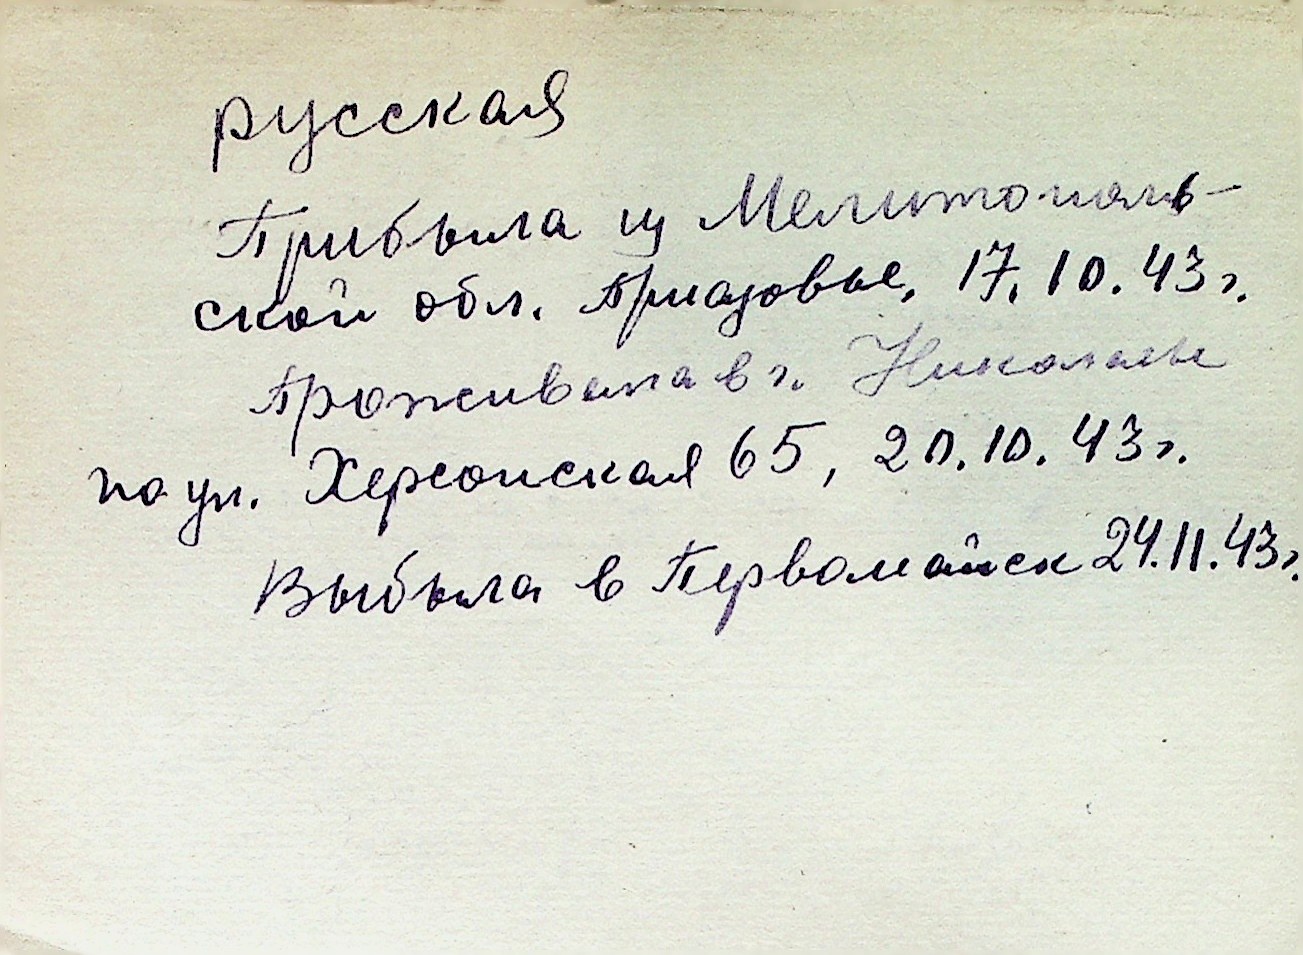 русская
Прибыла из Мелитополь-
ской обл. Приазовье, 17.10.43 г.
Проживала в г. Николаеве
по ул. Херсонская 65, 20.10.43 г.
Выбыла в Первомайск 24.11.43 г.